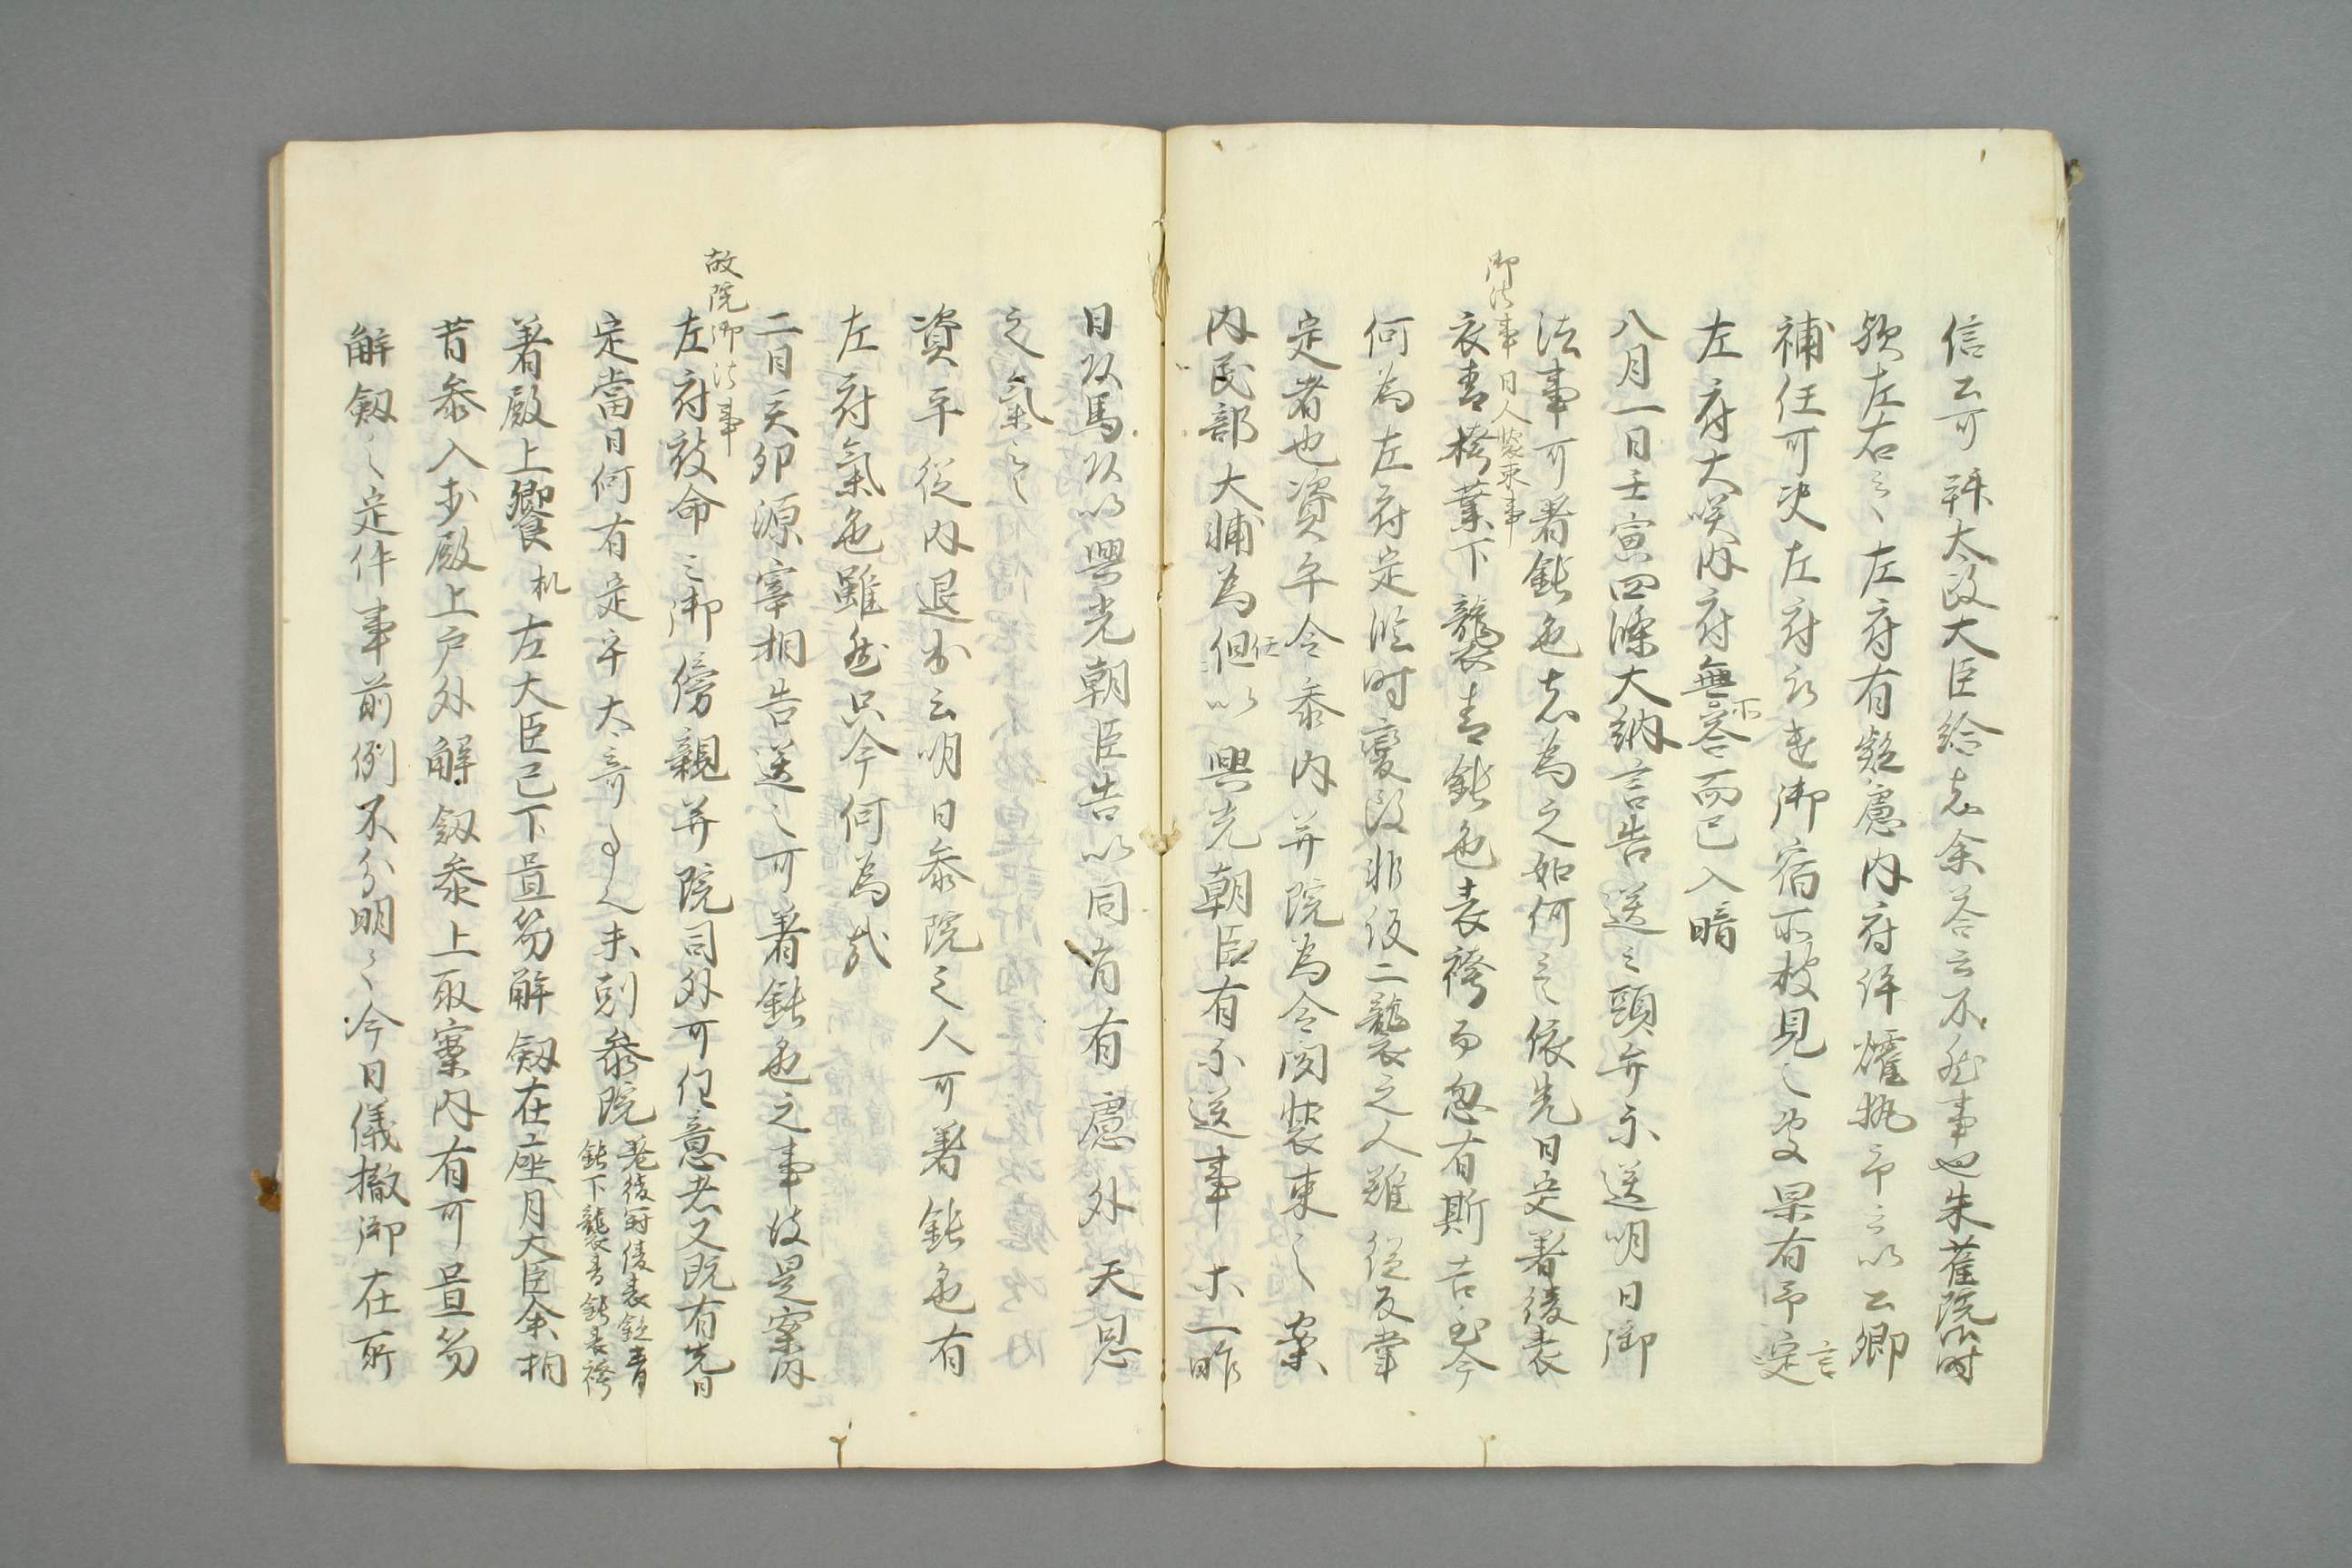 信云可辞太政大臣給者余答云不然事也朱雀院御時
歟左右云々左府有疑慮内府
補任可決左府被遣御宿所被見之処果有予定言
左府大咲内府無不答而已入暗
八月一日壬寅四條大納言告送云頭弁示送明日御
御法事日人装束事
法事可著鈍色者為之如何者依先日定著綾表
衣青朽葉下襲青鈍色表袴而忽有斯告至今
何為左府定臨時変改非仮二襲之人難従及掌
定者也資平令参内并院為令聞装束之案
内民部大輔為任但以興光朝臣有示送事等一昨
日以馬以興光朝臣告以同有慮外天恩
之氣云々
資平従内退出云明日参院之人可著鈍色有
左府氣色雖然只今何為哉
二日癸卯源宰相告送云可著鈍色之事彼是案内
故院御法事
左府報命云御傍親并院司外可任意者又既有先日
定當日何有定乎太奇事也未剋参院巻纓冠綾表鈍青
鈍下襲青鈍表袴
著殿上饗机左大臣已下置笏解劔在座内大臣余相
昔参入步殿上戸外解劔参上取案内有可置笏
解劔之定件事前例不分明云々今日儀撤御在所